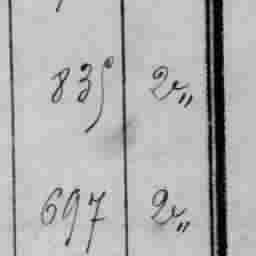 835 2 „
697 2 „